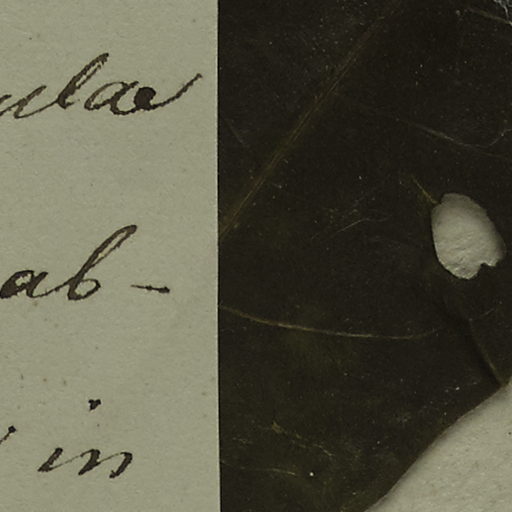 ulae
ab-
in